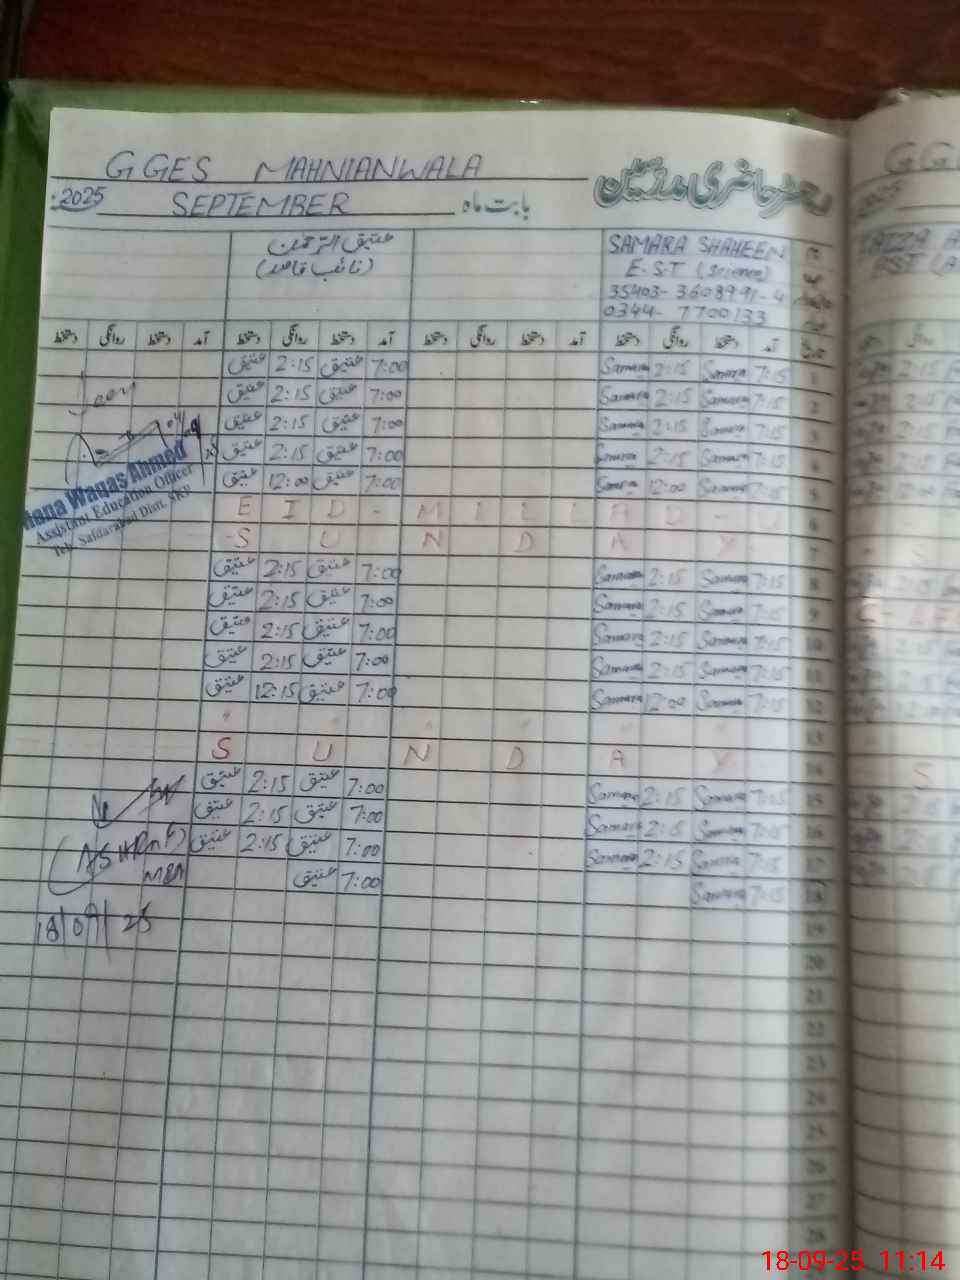 G GES MAHNIANWALA
رجسٹر حاضری مدرسین
:2025 SEPTEMBER بابت ماہ
عتیق الرحمن
(نائب قاصد)
SAMARA SHAHEEN
E.S.T (Science)
35403-3608991-4
0344-7700133
دستخط روانگی دستخط آمد دستخط روانگی دستخط آمد دستخط روانگی دستخط آمد دستخط روانگی دستخط آمد تاریخ
عتیق 2:15 عتیق 7:00 Samara 2:15 Samara 7:15 1
عتیق 2:15 عتیق 7:00 Samara 2:15 Samara 7:15 2
عتیق 2:15 عتیق 7:00 Samara 2:15 Samara 7:15 3
عتیق 2:15 عتیق 7:00 Samara 2:15 Samara 7:15 4
عتیق 12:00 عتیق 7:00 Samara 12:00 Samara 7:15 5
Rana Waqas Ahmed
Assistant Education Officer
Teh. Safdarabad Distt. SKP
EID-MILLAD- 6
SUNDAY 7
عتیق 2:15 عتیق 7:00 Samara 2:15 Samara 7:15 8
عتیق 2:15 عتیق 7:00 Samara 2:15 Samara 7:15 9
عتیق 2:15 عتیق 7:00 Samara 2:15 Samara 7:15 10
عتیق 2:15 عتیق 7:00 Samara 2:15 Samara 7:15 11
عتیق 12:15 عتیق 7:00 Samara 12:00 Samara 7:15 12
13
SUNDAY 14
عتیق 2:15 عتیق 7:00 Samara 2:15 Samara 7:15 15
عتیق 2:15 عتیق 7:00 Samara 2:15 Samara 7:15 16
عتیق 2:15 عتیق 7:00 Samara 2:15 Samara 7:15 17
عتیق 7:00 Samara 7:15 18
(ASHRAF)
MEA
18/09/25
19
20
21
22
23
24
25
26
27
28
18-09-25 11:14